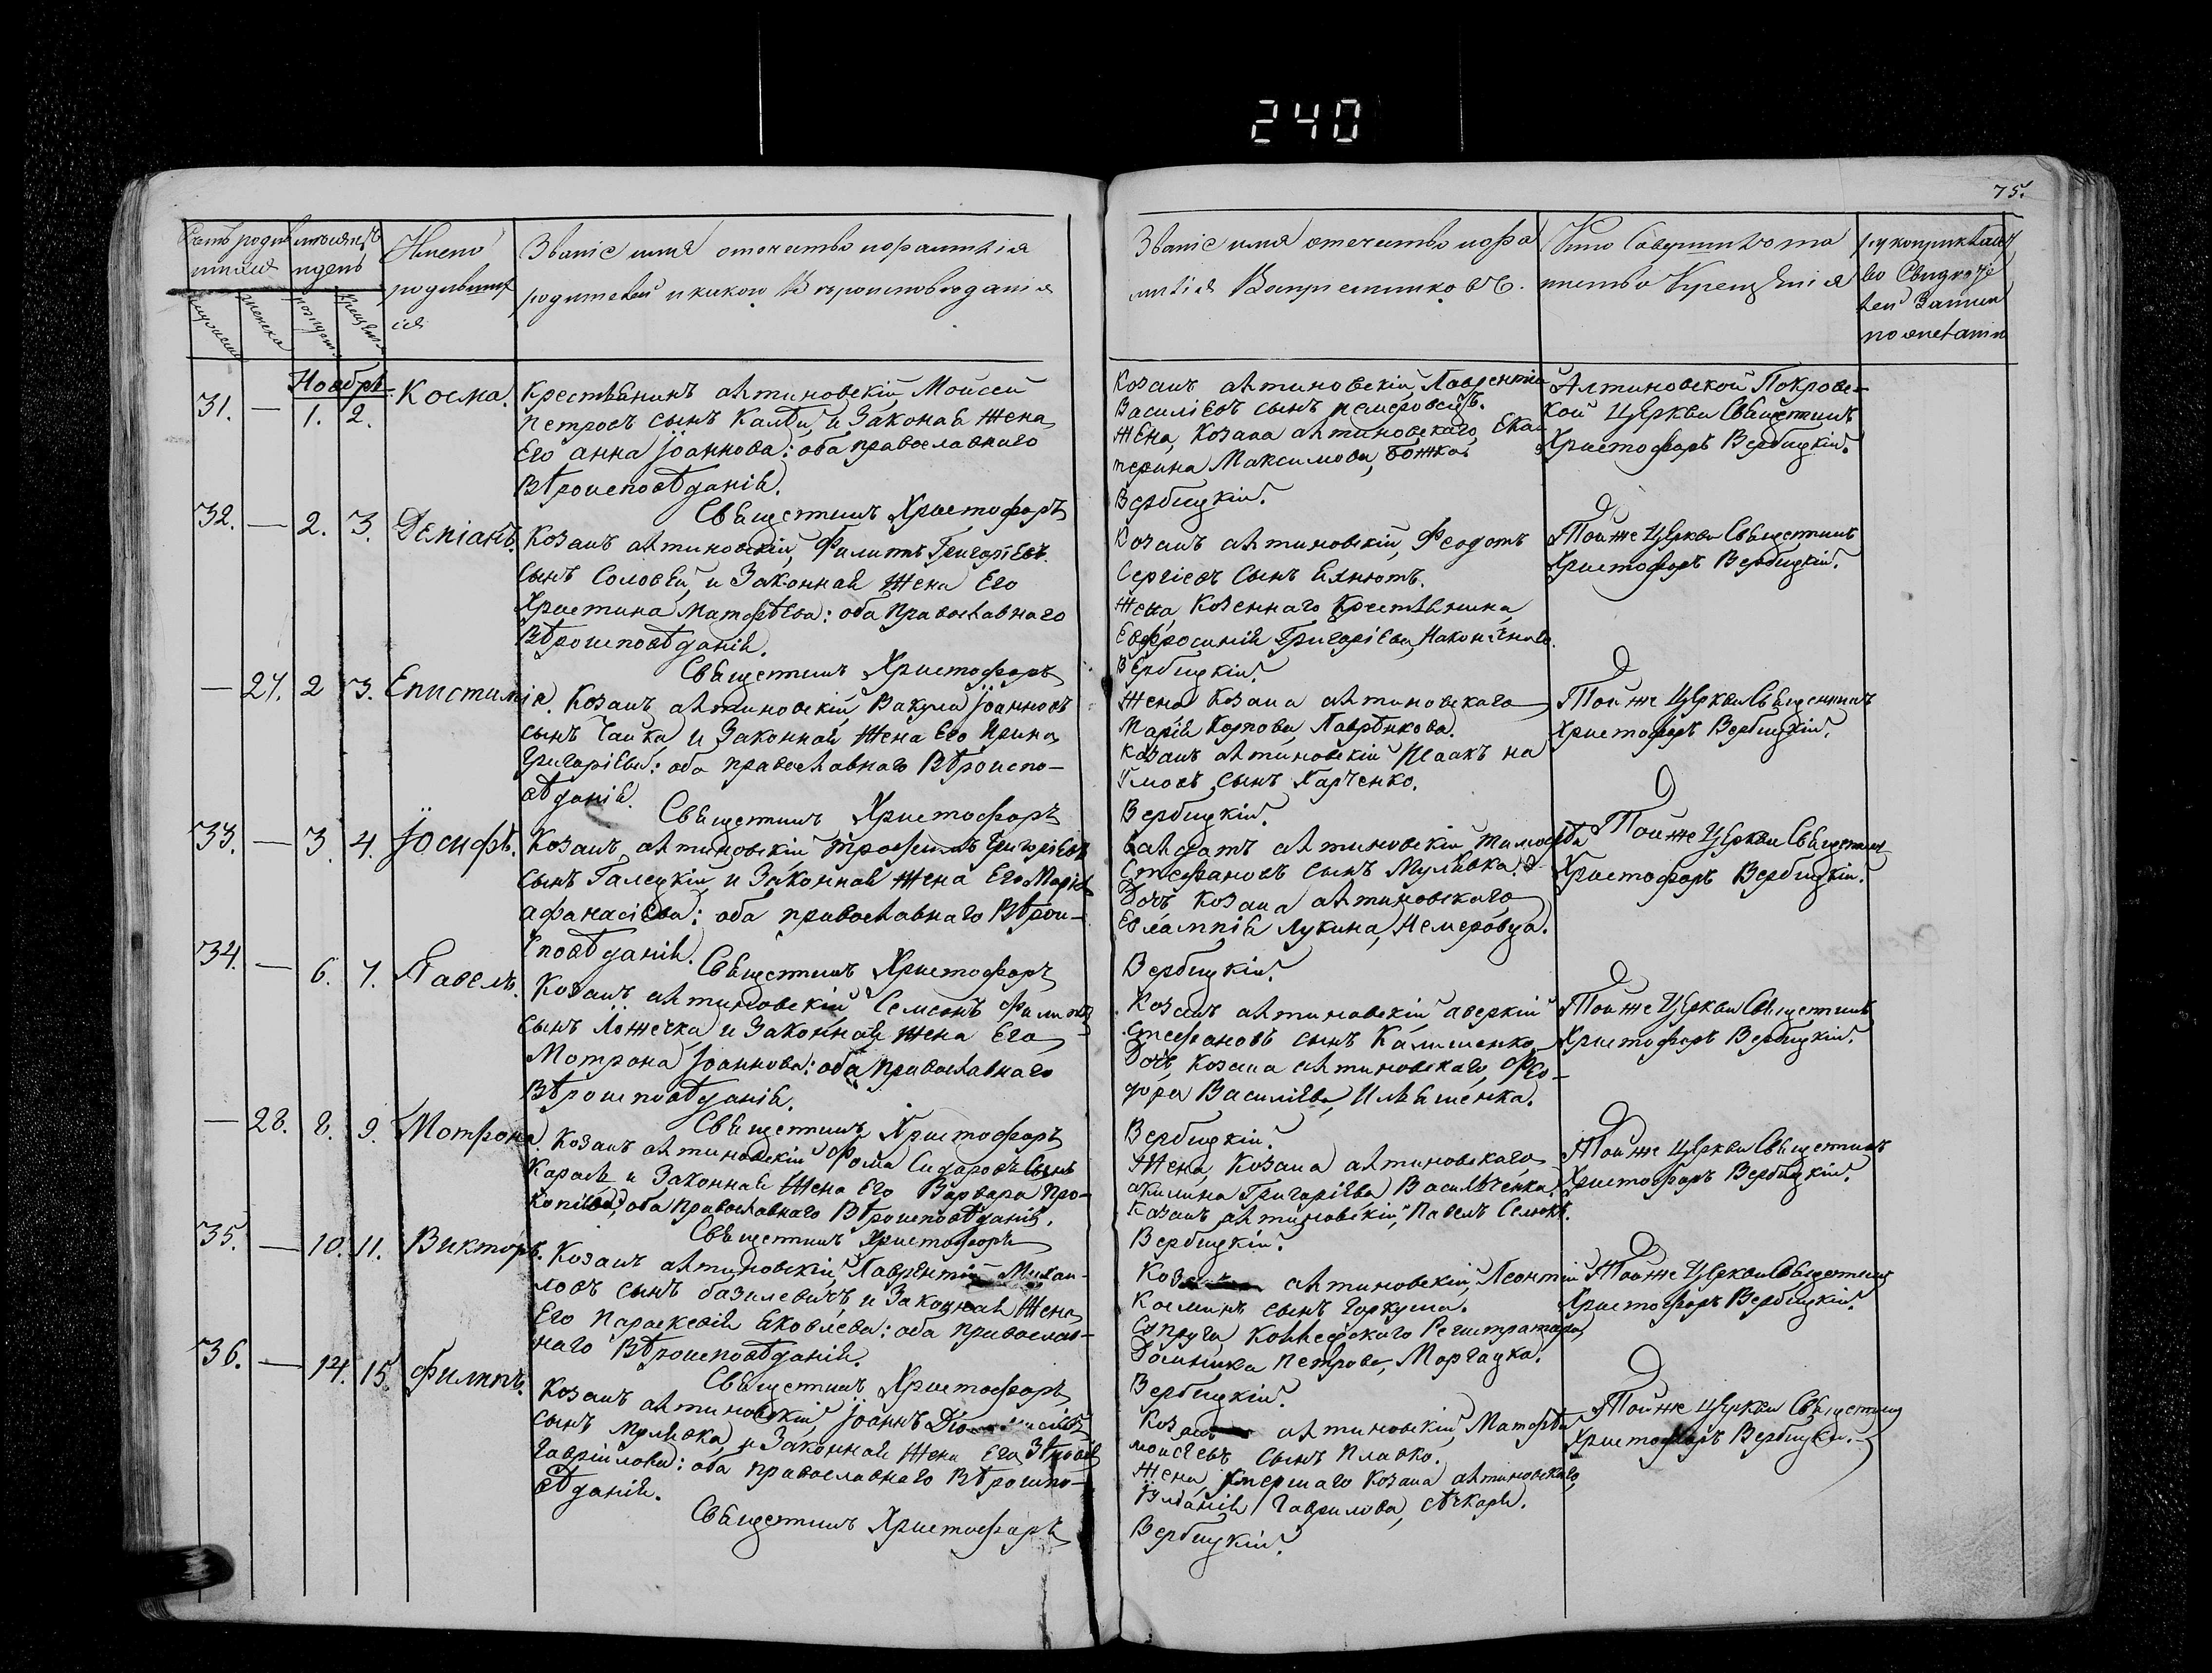 240
75.
Счетъ родив мѣсяцъ
шихся и день
мужеска
женска
рожден.
крещен.
Имена
родивших
ся
Званіе имя отечество и фамилія
родителей и какого Вѣроисповѣданія
Званіе имя отечество и фа
милія Воспріемниковъ.
Кто Совершилъ та
инство Крещенія
Ноябрь
31. — 1. 2. Косма.
Крестьянинъ алтиновскій Мойсей
Петровъ сынъ Калба, и Законая Жена
Его анна Іоаннова: оба православнаго
Вѣроисповѣданія.
Священникъ Христофоръ
Козакъ алтиновскій, Лаврентій
Василіевъ сынъ
Жена, Козака алтиновскаго, Ека-
терина Максимова, Божко.
Вербицкій.
Алтиновской Покровс-
кой Церкви Священникъ
Христофоръ Вербицкій.
32. — 2. 3. Деміанъ.
Козакъ алтиновскій, Филипъ Григоріевъ
сынъ Соловей, и Законная Жена Его
Христина Матфѣева: оба Православнаго
Вѣроисповѣданія.
Священникъ Христофоръ
Козакъ алтиновскій, Феодотъ
Сергіевъ Сынъ
Жена, Козеннаго Крестьянина,
Евфросинія Григоріева,
Вербицкій.
Тойже Церкви Священникъ
Христофоръ Вербицкій.
— 27. 2 3. Епистимія.
Козакъ алтиновскій, Вакула Іоанновъ
сынъ Чайка, и Законная Жена Его Ирина
Григоріева: оба православнаго Вѣроиспо-
вѣданія.
Священникъ Христофоръ
Жена Козака алтиновскаго
Марія Карпова,
Козакъ алтиновскій Исаакъ
сынъ Харченко.
Вербицкій.
Тойже Церкви Священникъ
Христофоръ Вербицкій.
33. — 3. 4. Іосифъ.
Козакъ алтиновскій Трофимъ Григоріевъ
сынъ Галецкій, и Законная Жена Его Марія
афанасіева: оба православнаго Вѣрои-
споѣданія.
Священникъ Христофоръ
алтиновскій
Стефановъ сынъ Мулявка.
Дочь Козака алтиновскаго
Евлампія Лукина, Немеровца.
Вербицкій.
Тойже Церкви Священникъ
Христофоръ Вербицкій.
34. — 6. 7. Павелъ.
Козакъ алтиновскій Семеонъ
сынъ Ложечка, и Законная Жена Его
Мотрона Іоаннова: оба Православнаго
Вѣроисповѣданія.
Священникъ Христофоръ
Козакъ алтиновскій аверкій
Стефановъ сынъ Калишенко
Дочь, Козака алтиновскаго, Фео-
дора Василіева, Ильяшенка.
Вербицкій.
Тойже Церкви Священникъ
Христофоръ Вербицкій.
— 28. 8. 9. Мотрона.
Козакъ алтиновскій Фома Сидоровъ Сынъ
Карась и Законная Жена Его Варвара Про-
копіева, оба Православнаго Вѣроисповѣданія.
Священникъ Христофоръ
Жена, Козака алтиновскаго
акилина Григоріева, Васильченка.
Козакъ алтиновскій, Павелъ Селюкъ.
Вербицкій.
Тойже Церкви Священникъ
Христофоръ Вербицкій.
35. — 10. 11. Викторъ.
Козакъ алтиновскій, Лаврентій Михаи-
ловъ сынъ базилевичъ, и Законная Жена
Его Параскевія Яковлева: оба Православ-
наго Вѣроисповѣданія.
Священникъ Христофоръ
алтиновскій, Леонтій
Косминъ сынъ Горкуша.
Супруга, Коллежскаго Регистратора,
Домникія Петрова,
Вербицкій.
Тойже Церкви Священникъ
Христофоръ Вербицкій.
36. — 14. 15. Филипъ.
Козакъ алтиновскій, Іоаннъ
сынъ Мулявка, и Законная Жена Его
Гавріилова: оба Православнаго Вѣроиспо-
вѣданія.
Священникъ Христофоръ
алтиновскій, Матфѣй
Моисеевъ сынъ Плавко.
Жена, умершаго Козака алтиновскаго,
Гаврилова,
Вербицкій.
Тойже Церкви Священникъ
Христофоръ Вербицкій.